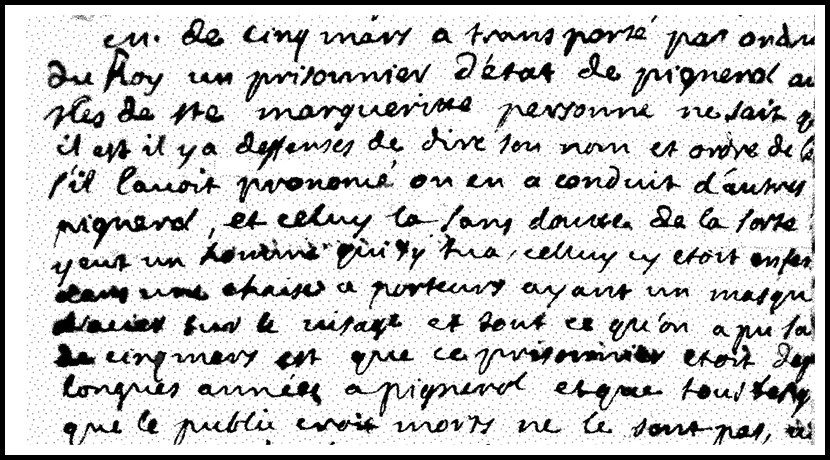 M. de Cinq mars a transporté par ordre
du Roy un prisonnier d'état de pignerol au
isles de ste margueritte personne ne sait
il est il y a deffenses de dire son nom et ordre de le
s'il l'avoit prononcé on en a conduit d'autres
pignerol, et celuy la sans doutte de la sorte
y eut un homme qui s'y tua, celluy cy etoit enfer
dans une chaise a porteurs ayant un masqu
d'acier sur le visage et tout ce qu'on a pu sa
de cinqmars est que ce prisonnier etoit dep
longues années a pignerol et que tous
que le public croit morts ne le sont pas,